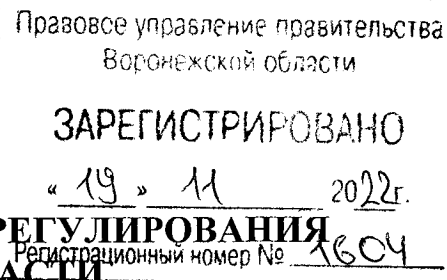 Правовое управление правительства
Воронежской области
ЗАРЕГИСТРИРОВАНО
« 19 » 11 2022г.
РЕГУЛИРОВАНИЯ
Регистрационный номер № 1604
АСТИ